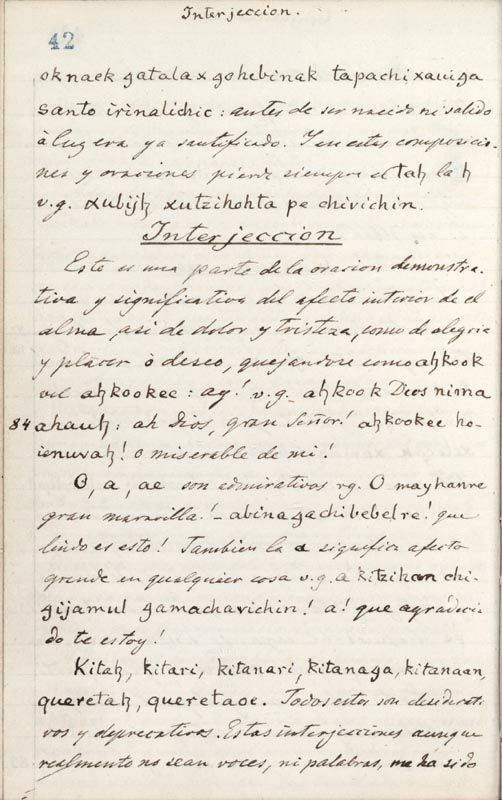 Interjeccion.
42
oknaek gatala x gohebinak tapachi xaviga
santo irinalichic: antes de ser nacido ni salido
à luz era ya santificado. Y en estas composicio-
nes y oraciones pierde siempre el taꜩ la ꜩ
v.g. xubijꜩ xutzihohta pe chivichin.
Interjeccion
Este es una parte de la oracion demonstra-
tiva y significativa del afecto interior de el
alma, asi de dolor y tristeza, como de alegria
y placer ò deseo, quejandose como aꜩkook
vel aꜩkookee: ay! v.g. aꜩkook Dios nima
84 ahauꜩ: ah Dios, gran Señor! aꜩkookee ho-
ienuvaꜩ! o miserable de mi!
O, a, ae son admirativos vg. O mayhanre
gran maravilla! - abinagachibebelre! que
lindo es esto! Tambien la a significa afecto
grande en qualquier cosa v.g. a kitzihan chi-
gijamul gamachavichin! a! que agradeci-
do te estoy!
Kitaꜩ, kitari, kitanari, kitanaga, kitanaan,
queretaꜩ, queretaoe. Todos estos son desiderati-
vos y deprecativos. Estas interjecciones aunque
realmente no sean voces, ni palabras, me ha sido